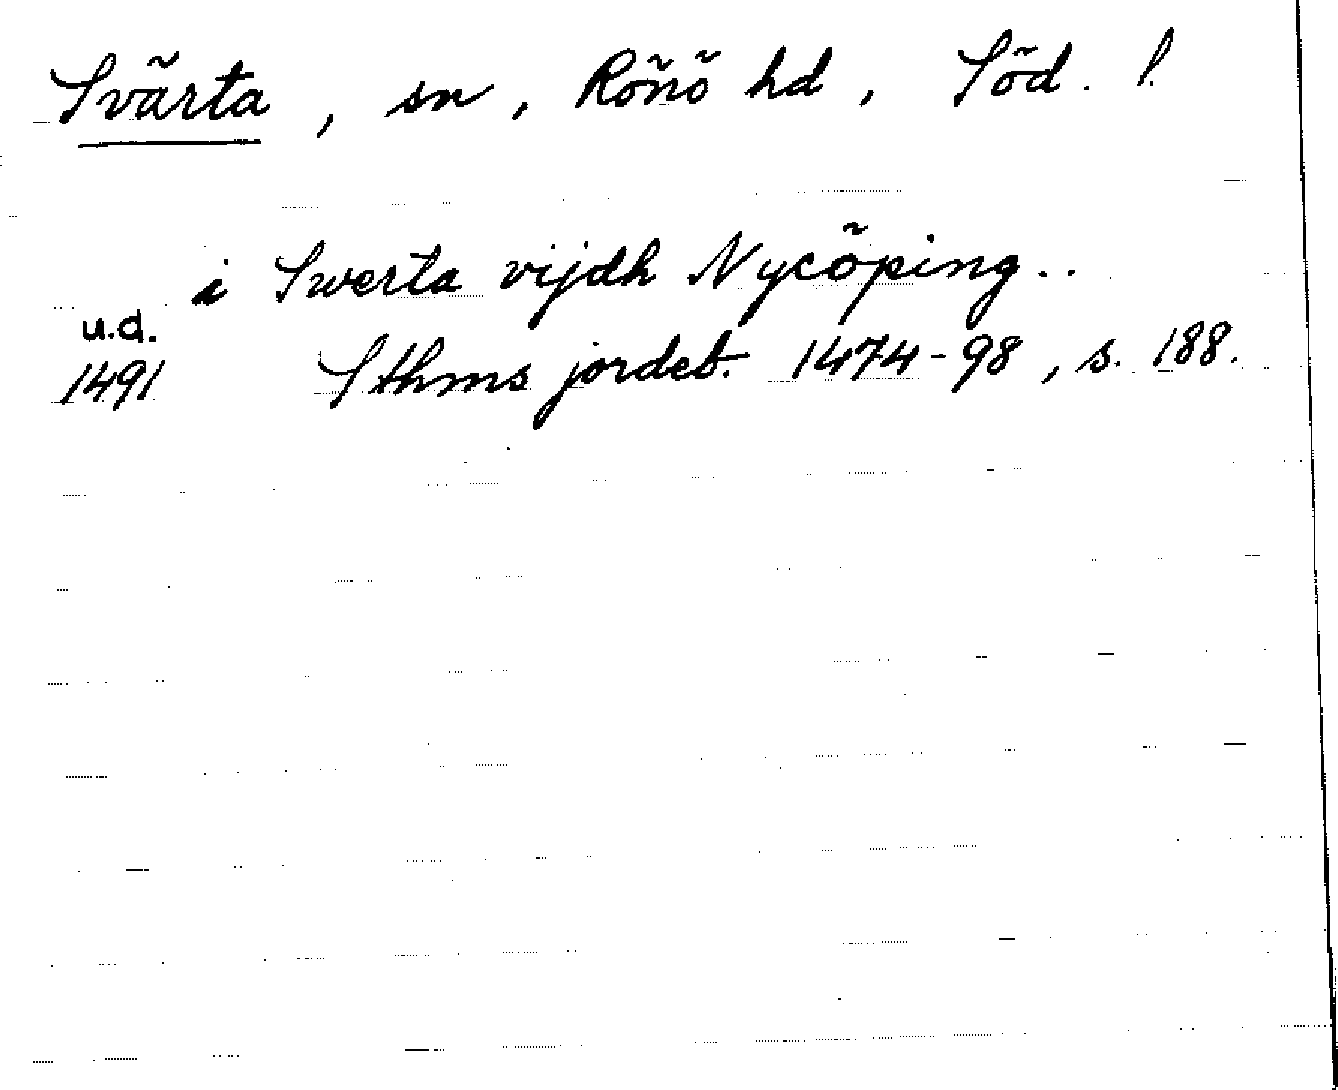 Svärta, sn, Rönö hd, Söd. l.
i Swerta vijdh Nycöping..
u.d.
1491 Sthms jordeb. 1474-98, s. 188.